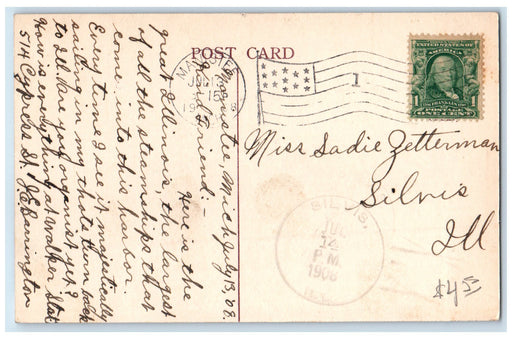 POST CARD
Manistee Mich July 13, '08.
Friend:-
Here is the
great Illinois, the largest
of all the steamships that
come into this harbor.
Every time I see it majestically
sailing in my thots turn back
to Ill. Are you organist yet?
How is everything at Walker Sta?
514 Cypress St.
1
UNITED STATES
POSTAGE
ONE CENT
Miss Sadie Zetterman
Silvis
Ill
SILVIS,
JUL
14
P.M.
1908
ILL.
$4.5